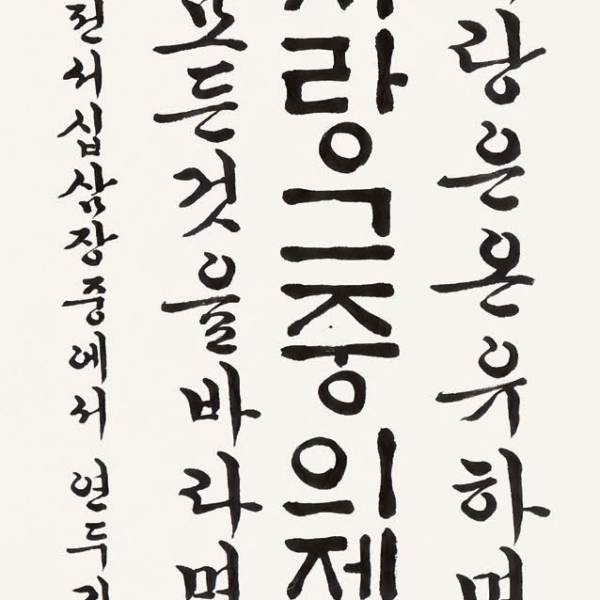 랑은온유하며
사랑그중의제
모든것을바라며
전서십삼장중에서 연두